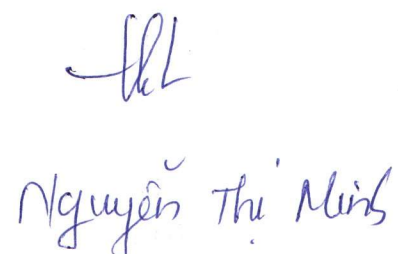 Nguyễn Thị Minh